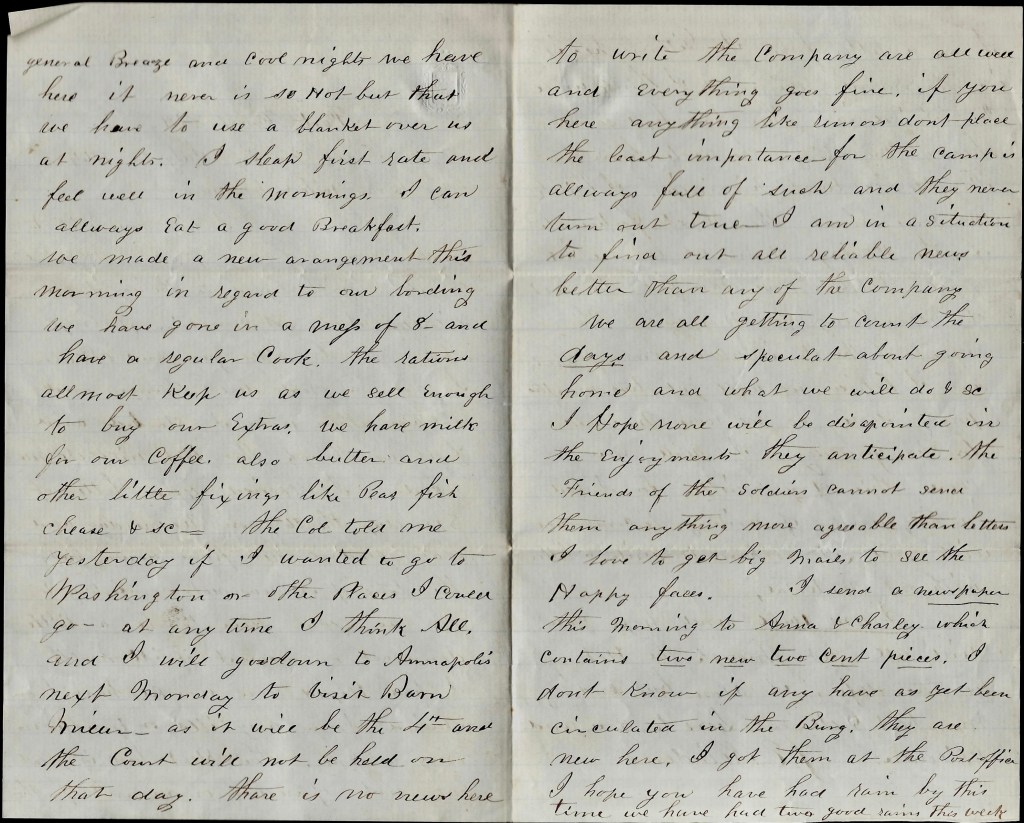 general Breaze and cool nights we have
here it never is so Hot but that
we have to use a blanket over us
at nights. I sleap first rate and
feel well in the mornings. I can
allways Eat a good Breakfast.
we made a new arangement this
morning in regard to our bording
we have gone in a mess of 8 - and
have a regular Cook. the rations
allmost Keep us as we sell Enough
to buy our Extras. we have milk
for our Coffee. also butter and
other little fixings like Peas fish
chease & sc = the Col told me
yesterday if I wanted to go to
Washington or other Places I could
go - at any time I think All.
and I will go down to Annapolis
next Monday to Visit Barn
- as it will be the 4th and
the Court will not be held on
that day. thare is no news here
to write the Company are all well
and Everything goes fine. if you
here anything like rumors dont place
the least importance for the camp is
allways full of such and they never
turn out true - I am in a Situation
to find out all reliable news
better than any of the Company
we are all getting to count the
days and speculat about going
home and what we will do & sc
I Hope none will be disapointed in
the Enjoyments they anticipate. the
Friends of the Soldiers cannot send
them anything more agreeable than letters
I love to get big Mails to see the
Happy faces. I send a newspaper
this Morning to Anna & Charley which
contains two new two cent pieces. I
dont Know if any have as yet been
circulated in the Burg. they are
new here. I got them at the Post office
I hope you have had rain by this
time we have had two good rains this week